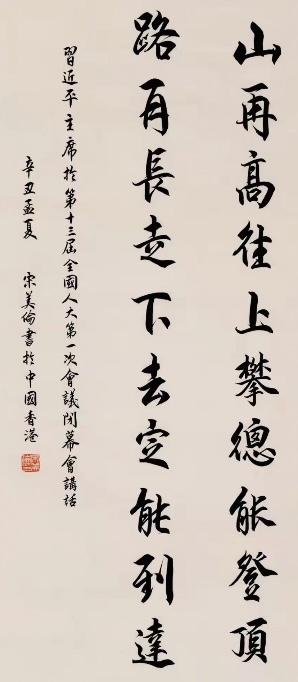 山再高往上攀總能登頂
路再長走下去定能到達
習近平主席於第十三屆全國人大第一次會議閉幕會講話
辛丑孟夏 宋美倫書於中國香港